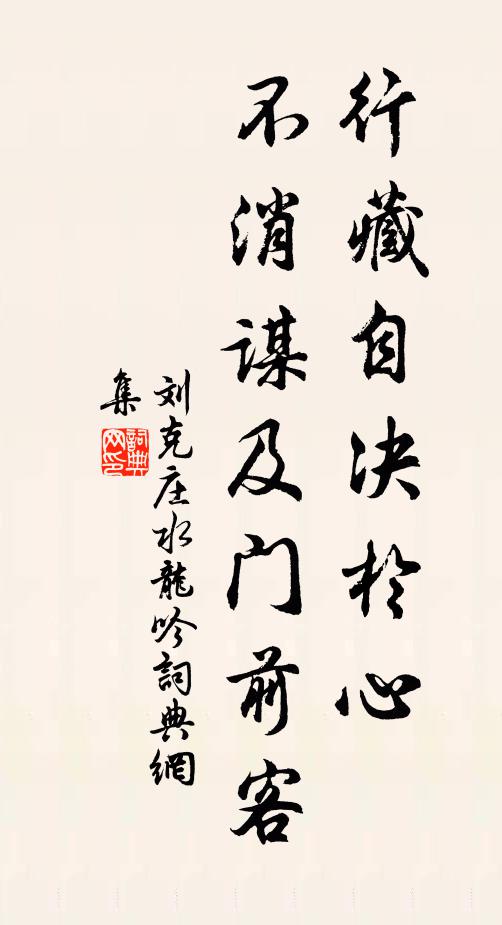 行藏自决於心
不消谋及门前客
刘克庄水龍吟詞典網
集
詞典网印